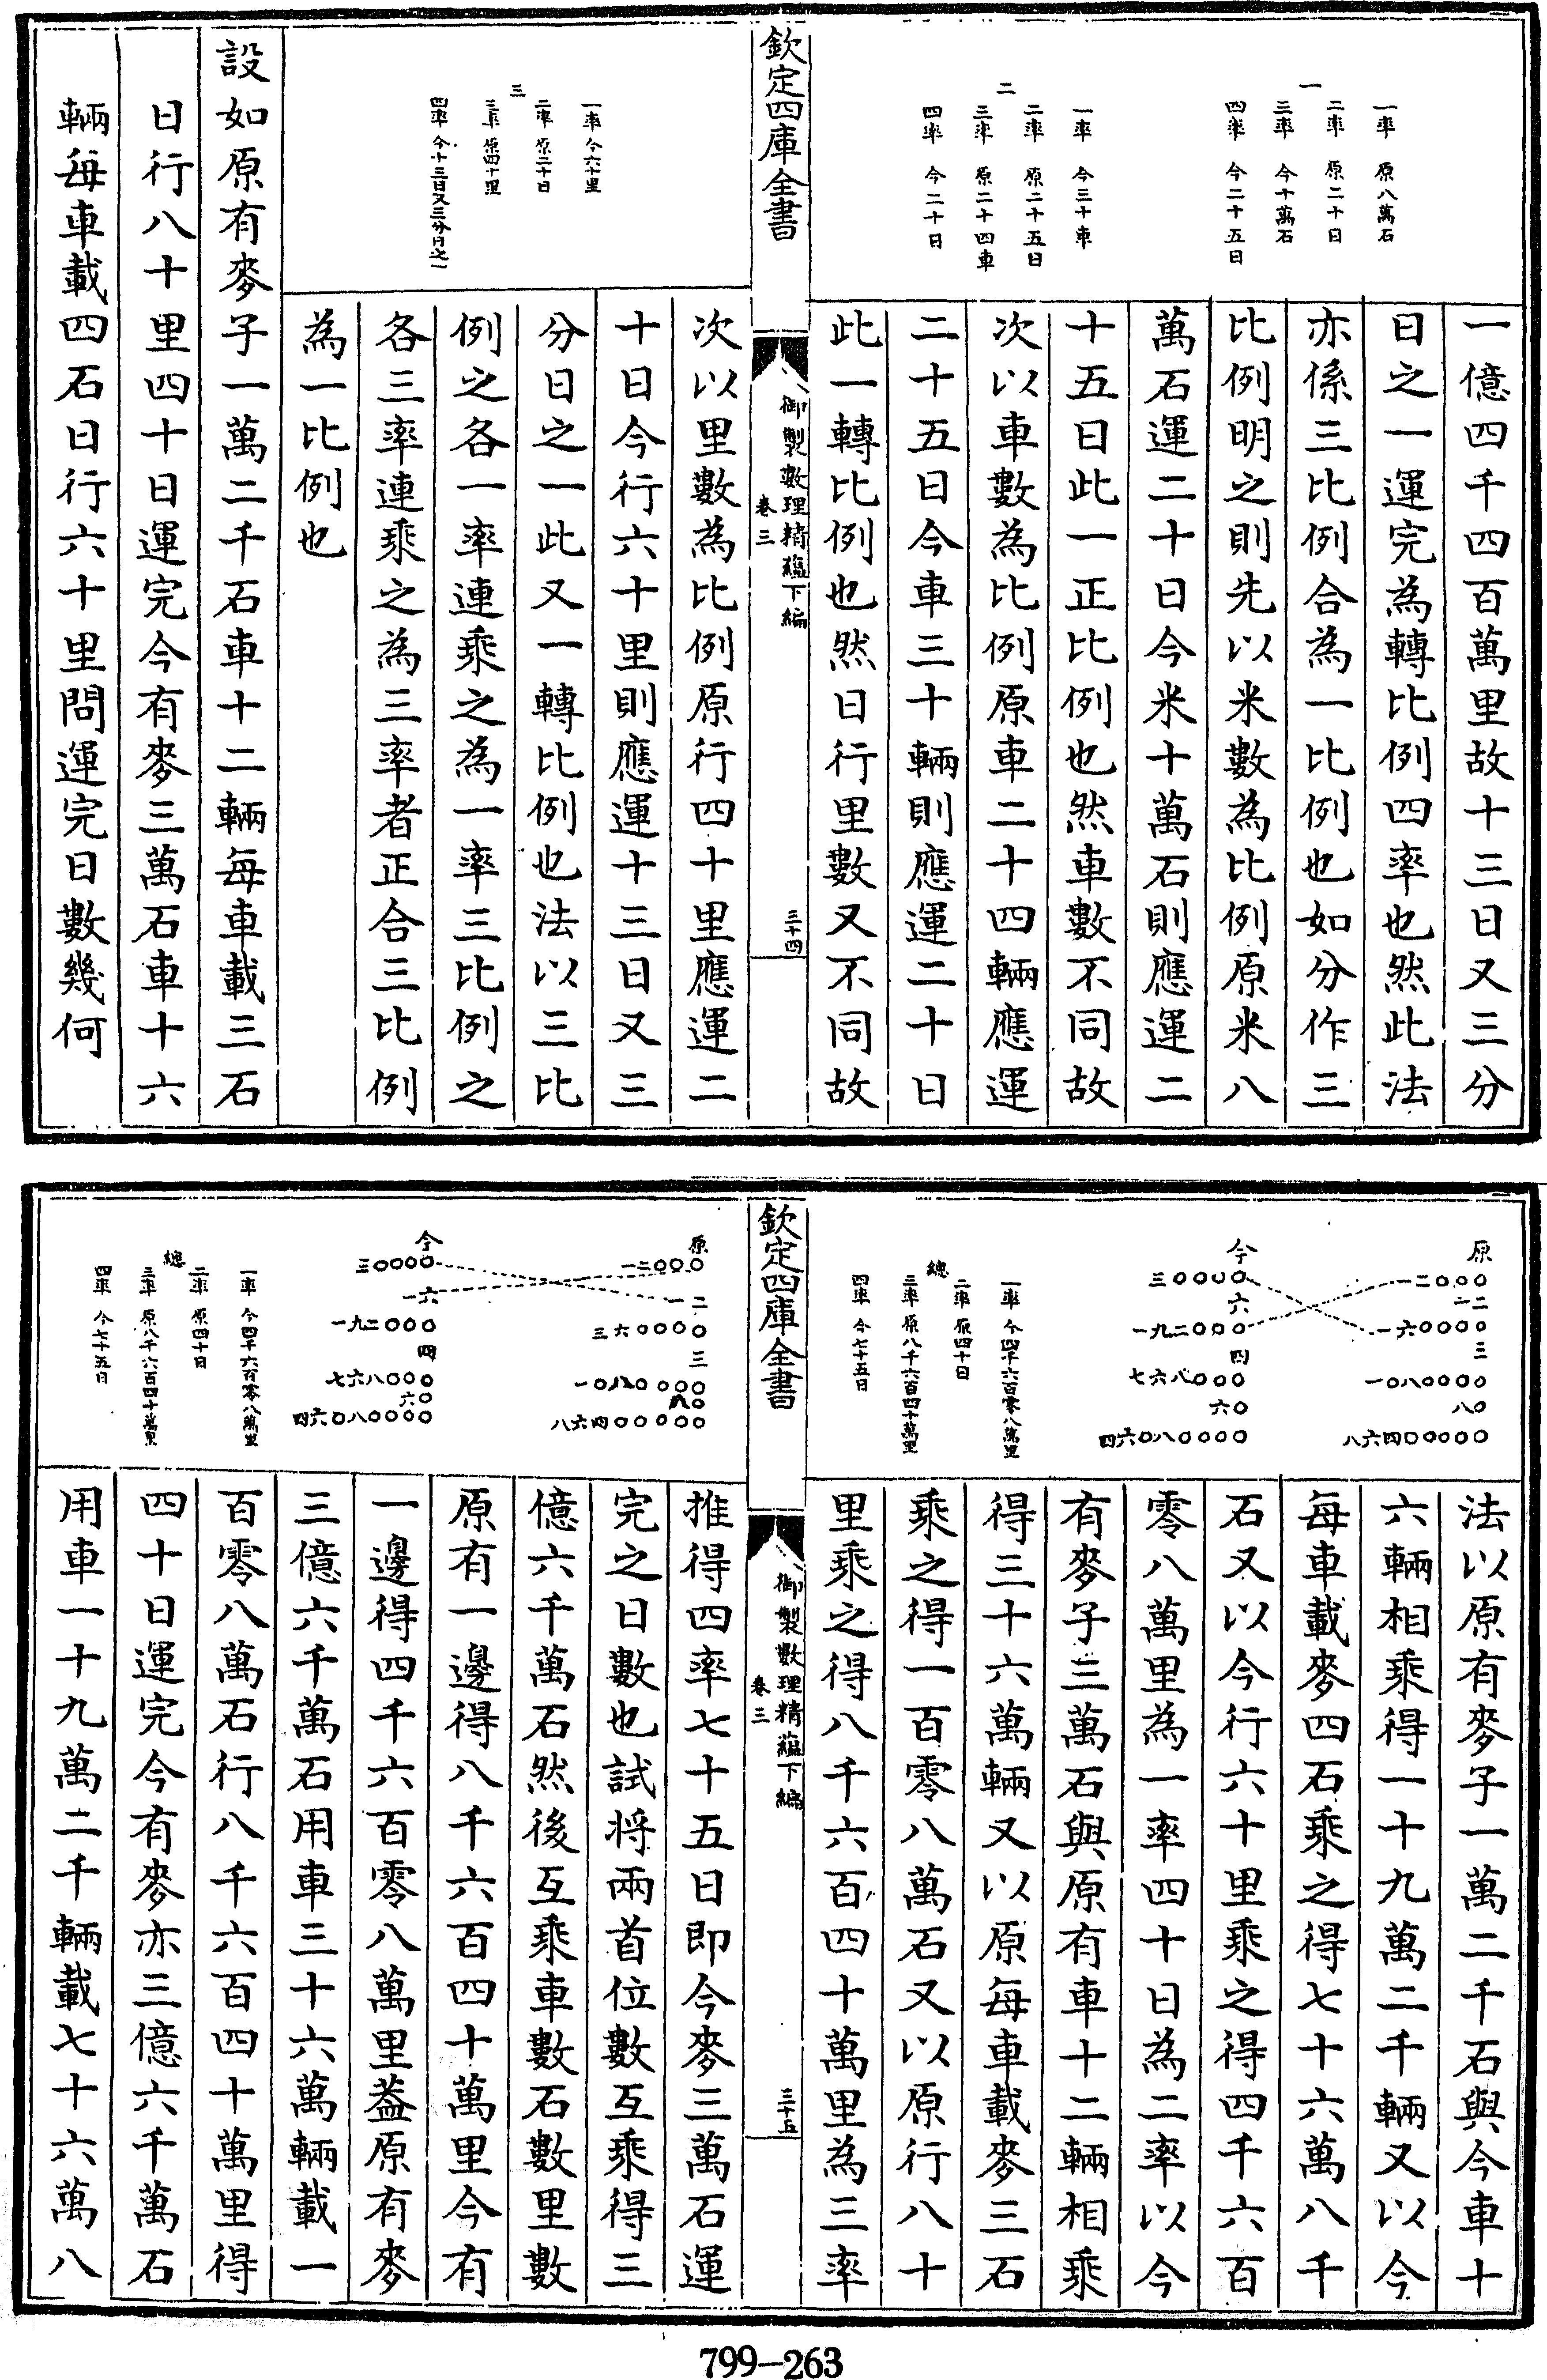 一
一率 原八萬石
二率 原二十日
三率 今十萬石
四率 今二十五日
二
一率 今三十車
二率 原二十五日
三率 原二十四車
四率 今二十日
一億四千四百萬里故十三日又三分
日之一運完為轉比例四率也然此法
亦係三比例合為一比例也如分作三
比例明之則先以米數為比例原米八
萬石運二十日今米十萬石則應運二
十五日此一正比例也然車數不同故
次以車數為比例原車二十四輛應運
二十五日今車三十輛則應運二十日
此一轉比例也然日行里數又不同故
欽定四庫全書
御製數理精蘊下編
卷三
三十四
三
一率 今六十里
二率 原二十日
三率 原四十里
四率 今十三日又三分日之一
次以里數為比例原行四十里應運二
十日今行六十里則應運十三日又三
分日之一此又一轉比例也法以三比
例之各一率連乘之為一率三比例之
各三率連乘之為三率者正合三比例
為一比例也
設如原有麥子一萬二千石車十二輛每車載三石
日行八十里四十日運完今有麥三萬石車十六
輛每車載四石日行六十里問運完日數幾何
原
一二〇〇〇
一二
一六〇〇〇〇
三
一〇八〇〇〇〇
八〇
八六四〇〇〇〇〇
今
三〇〇〇〇
六
一九二〇〇〇
四
七六八〇〇〇
六〇
四六〇八〇〇〇〇
總
一率 今四千六百零八萬里
二率 原四十日
三率 原八千六百四十萬里
四率 今七十五日
法以原有麥子一萬二千石與今車十
六輛相乘得一十九萬二千輛又以今
每車載麥四石乘之得七十六萬八千
石又以今行六十里乘之得四千六百
零八萬里為一率四十日為二率以今
有麥子三萬石與原有車十二輛相乘
得三十六萬輛又以原每車載麥三石
乘之得一百零八萬石又以原行八十
里乘之得八千六百四十萬里為三率
欽定四庫全書
御製數理精蘊下編
卷三
三十五
原
一二〇〇〇
一二
三六〇〇〇〇
三
一〇八〇〇〇〇
八〇
八六四〇〇〇〇〇
今
三〇〇〇〇
一六
一九二〇〇〇
四
七六八〇〇〇
六〇
四六〇八〇〇〇〇
總
一率 今四千六百零八萬里
二率 原四十日
三率 原八千六百四十萬里
四率 今七十五日
推得四率七十五日即今麥三萬石運
完之日數也試將兩首位數互乘得三
億六千萬石然後互乘車數石數里數
原有一邊得八千六百四十萬里今有
一邊得四千六百零八萬里葢原有麥
三億六千萬石用車三十六萬輛載一
百零八萬石行八千六百四十萬里得
四十日運完今有麥亦三億六千萬石
用車一十九萬二千輛載七十六萬八
799-263